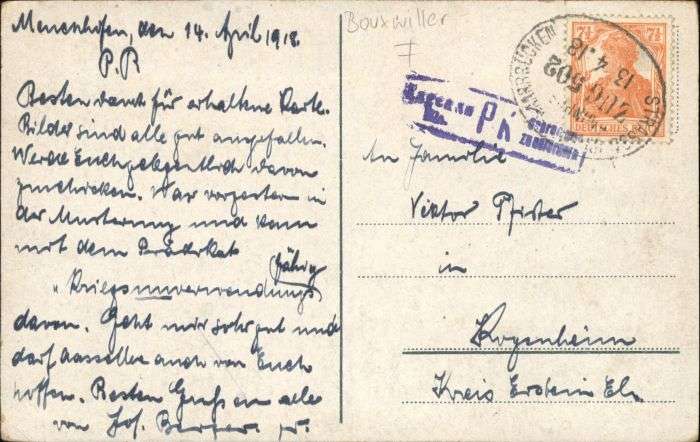 Menchhofen, den 14. April 1918.
P.P.
Besten dank für erhaltene Karte.
Bilder sind alle gut angefallen.
Werde Euch gelegentlich davon
zuschicken. War vorgestern in
der Musterung und kam
mit dem Prädikat
"Kriegsunverwendungsfähig
davon. Geht mir sehr gut und
darf dasselbe auch von Euch
hoffen. Besten Gruß an alle
von Jos. Berger jr.
Bouxwiller
7½ 7½
DEUTSCHES
STRASSBURG SAARBRÜCKEN
ZUG 502
13.4.18
P k
An Familie
Viktor Pfister
in
Kogenheim
Kreis Erstein Els.